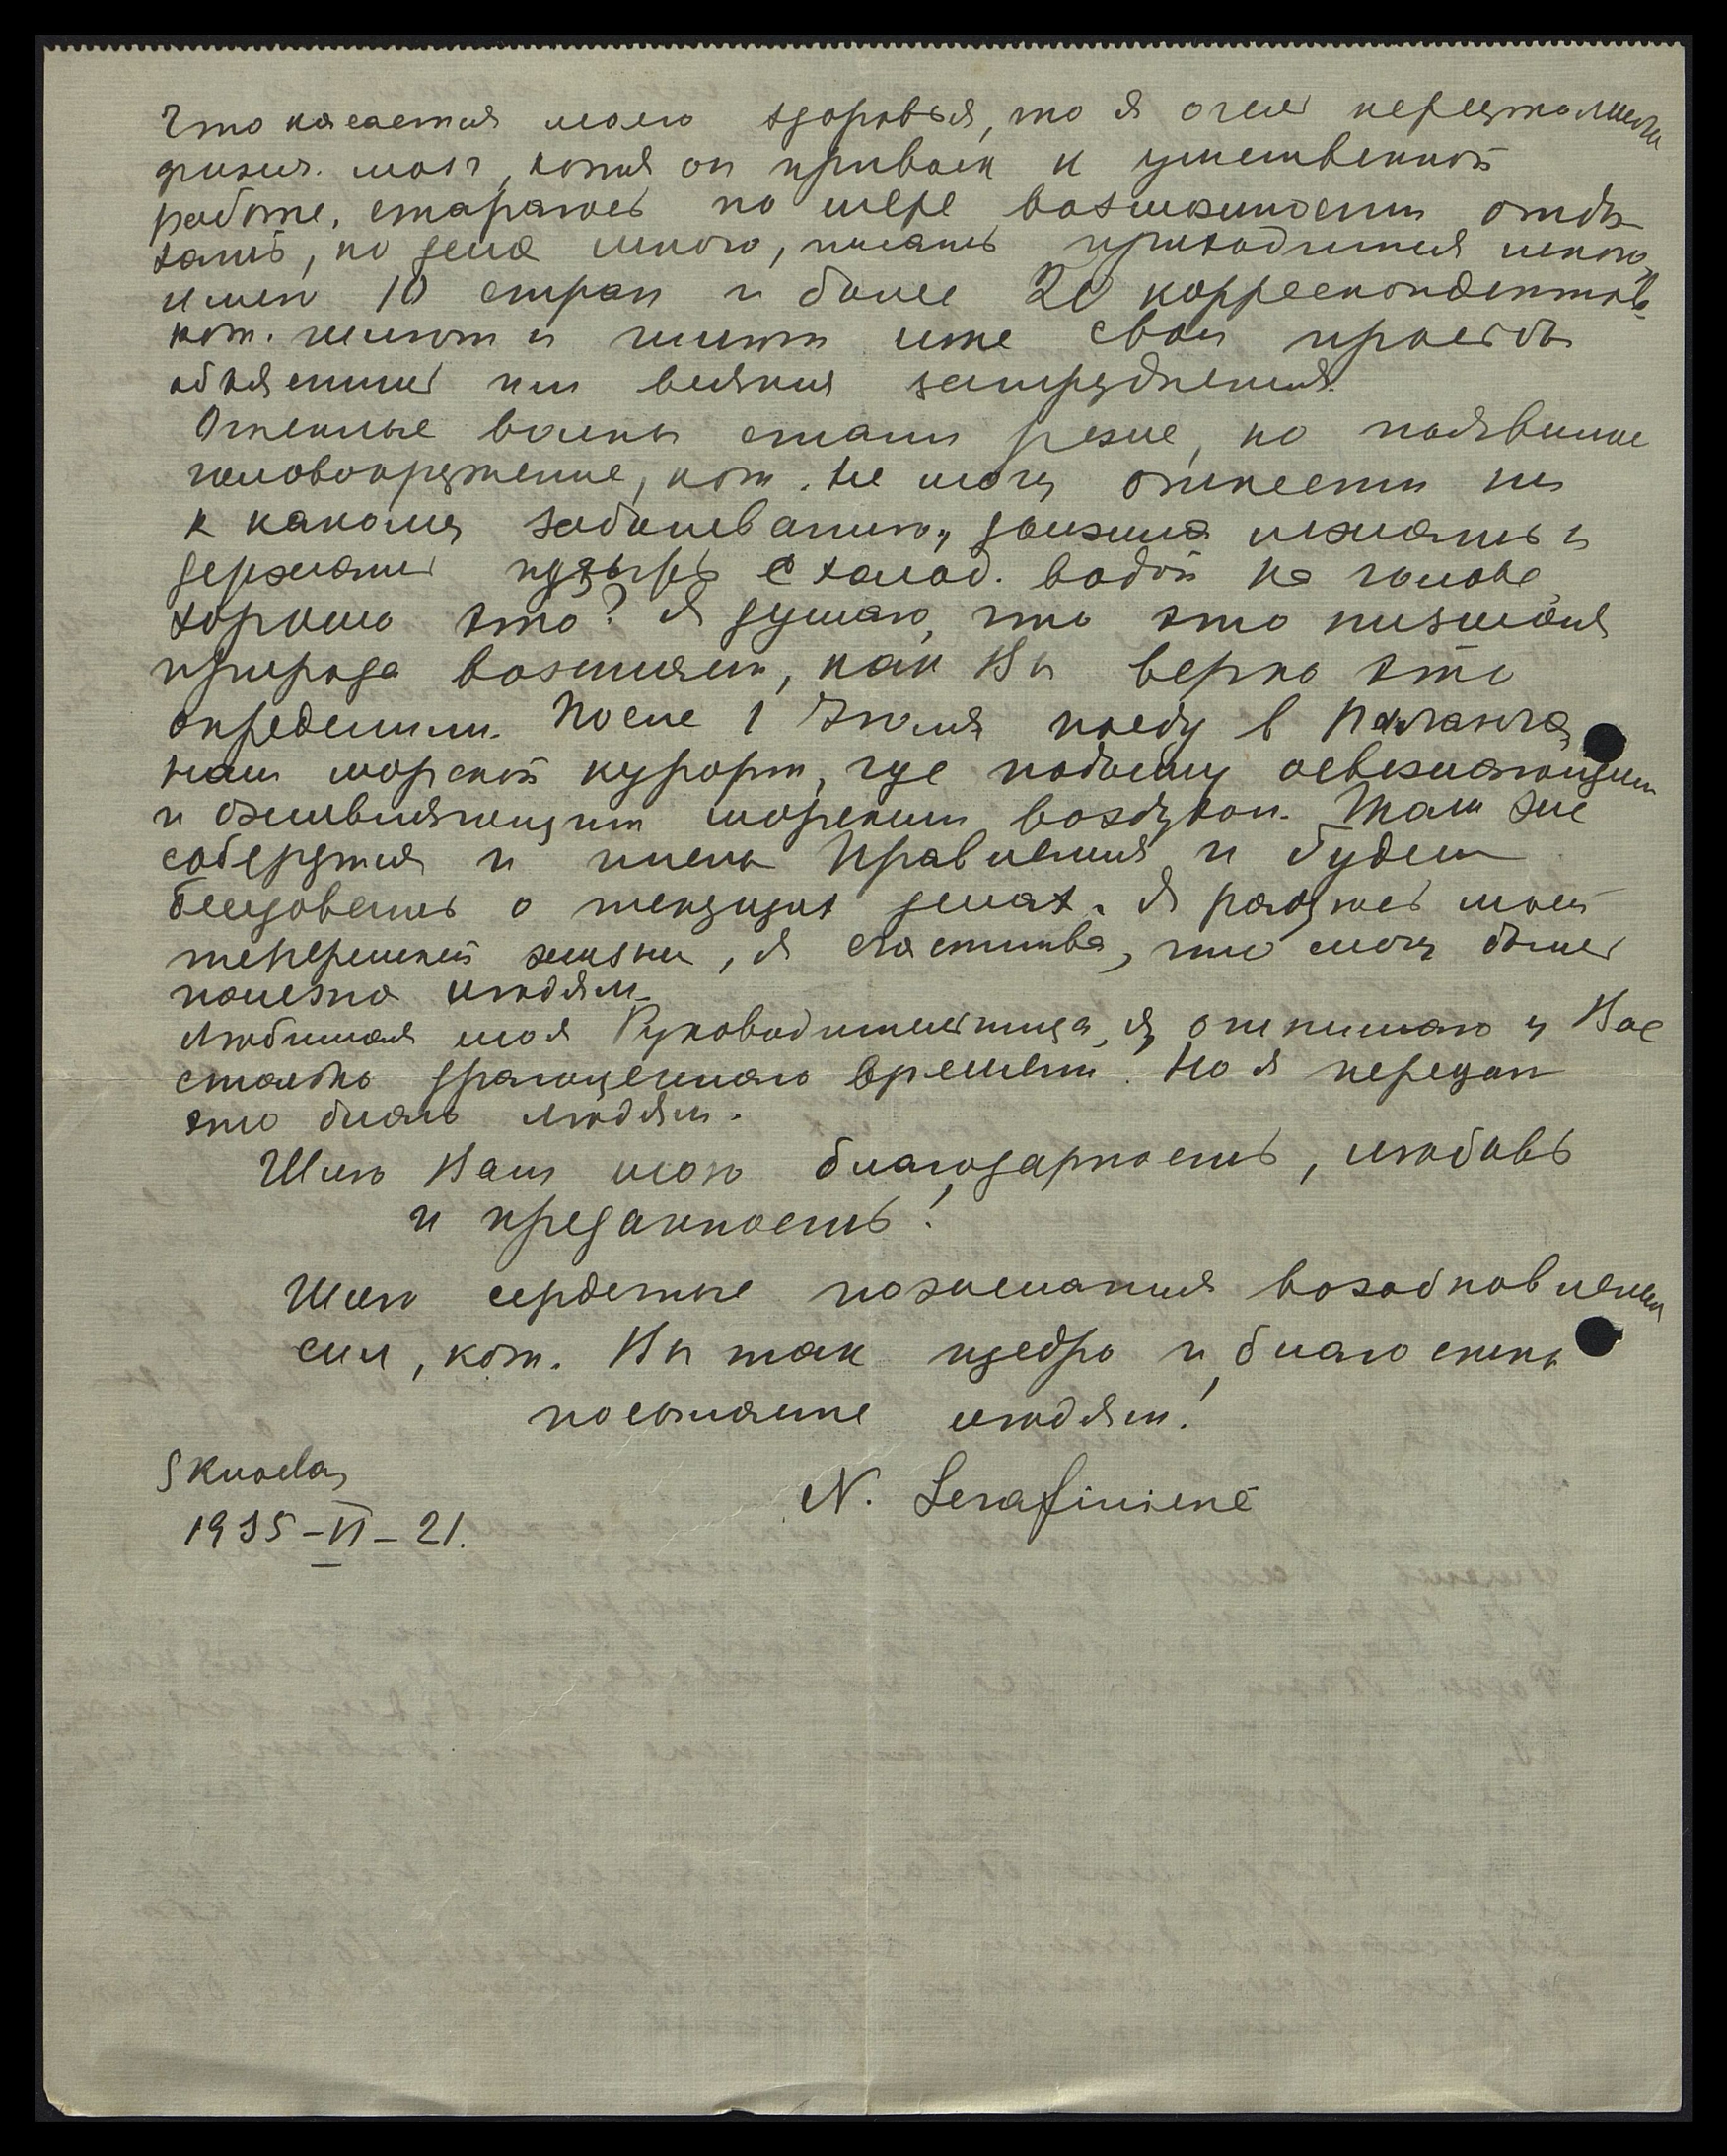 Что касается моего здоровья, то я очень переутомила
физич. мозг, хотя он привык к умственной
работе, стараюсь по мере возможности отды-
хать, но дела много, писать приходится много,
имею 10 стран и более 20 корреспондентов
кот. шлют и шлют мне свои просьбы
объяснить им всякия затруднения.
Огненные волны стали реже, но появилось
головокружение, кот. не могу отнести ни
к какому заболеванию, должна лежать и
держать пузырь с холод. водой на голове,
хорошо это? Я думаю, что это низшая
природа возмущ., как Вы верно это
определили. После 1 Июля поеду в Палангу,
наш морской курорт, где подышу освежающим
и оживляющим морским воздухом. Там же
соберутся и члены Правления и будем
беседовать о текущих делах. Я радуюсь моей
теперешней жизни, я счастлива, что могу быть
полезна людям.
Любимая моя Руководительница, я отнимаю у Вас
столько драгоценнаго времени. Но я передам
это благо людям.
Шлю Вам мою благодарность, любовь
и преданность!
Шлю сердечные пожелания возобновления
сил, кот. Вы так щедро и благостно
посылаете людям!
Skuodas
N. Serafinienė
1935-VI-21.